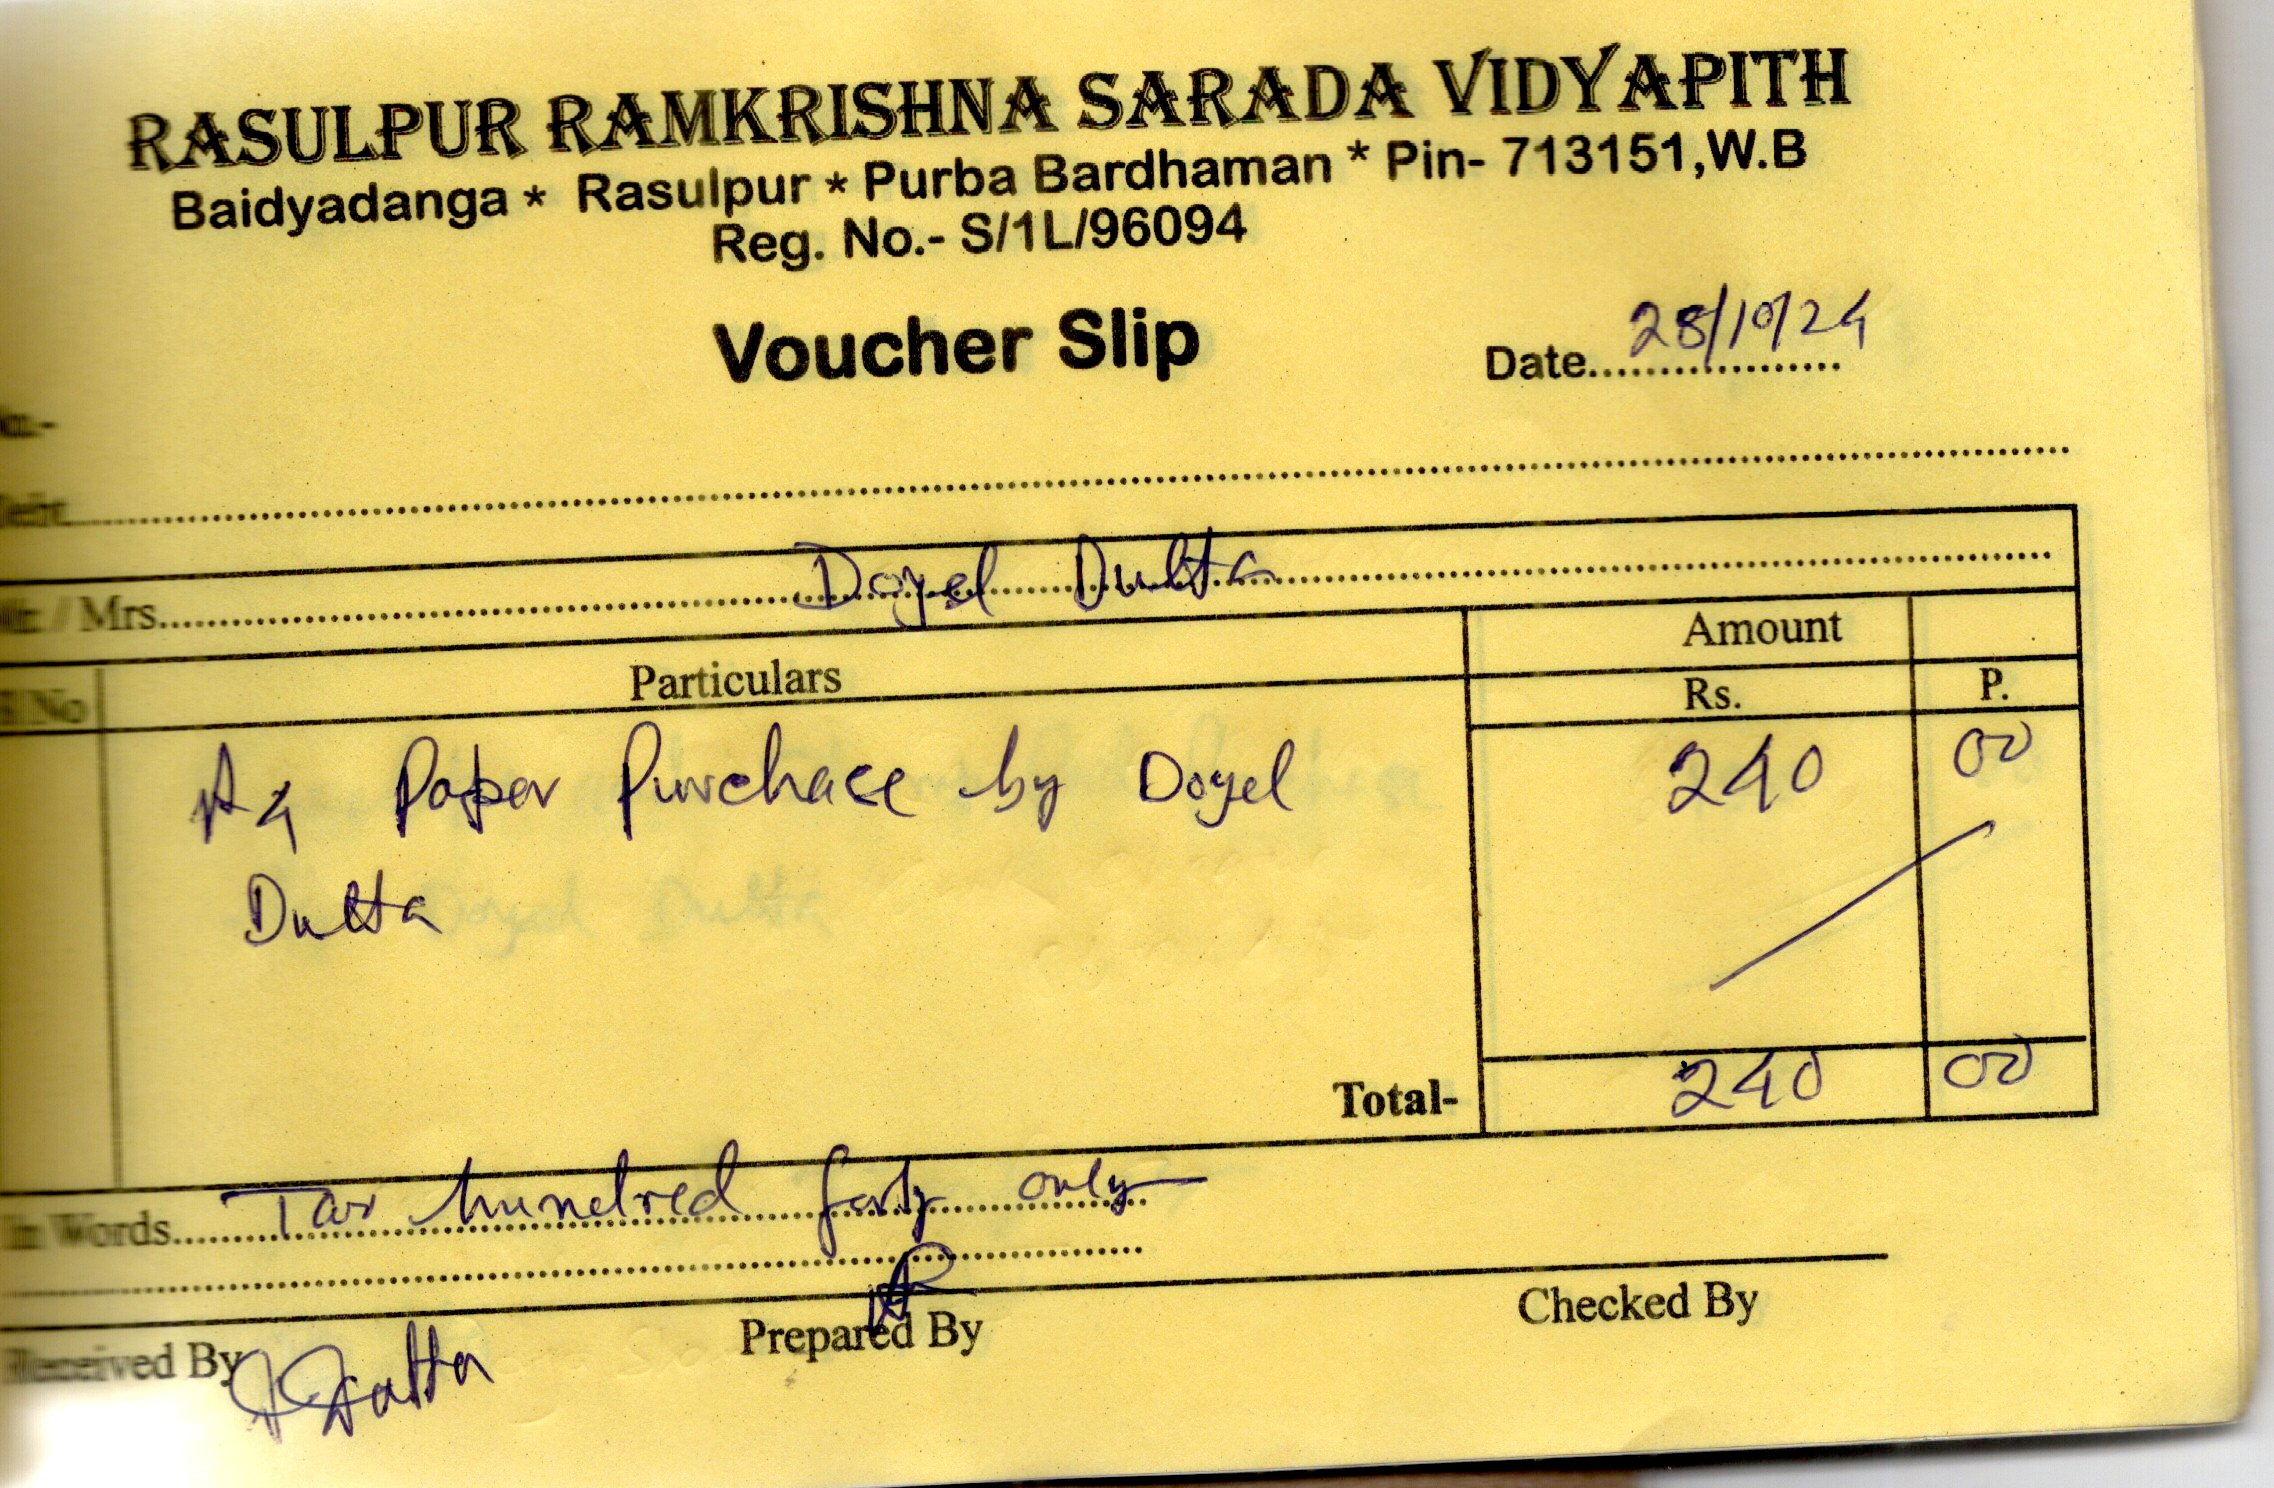 RASULPUR RAMKRISHNA SARADA VIDYAPITH
Baidyadanga * Rasulpur * Purba Bardhaman * Pin- 713151,W.B
Reg. No.- S/1L/96094
Voucher Slip
Date 28/10/24
/ Mrs. Doyel Dutta
Amount
No Particulars Rs. P.
A4 Paper Purchase by Doyel 240 00
Dutta
Total- 240 00
in Words Two hundred forty only
Received By Prepared By Checked By
Dutta